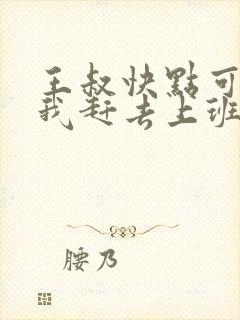 王叔快點可
我赶去上班
腰乃